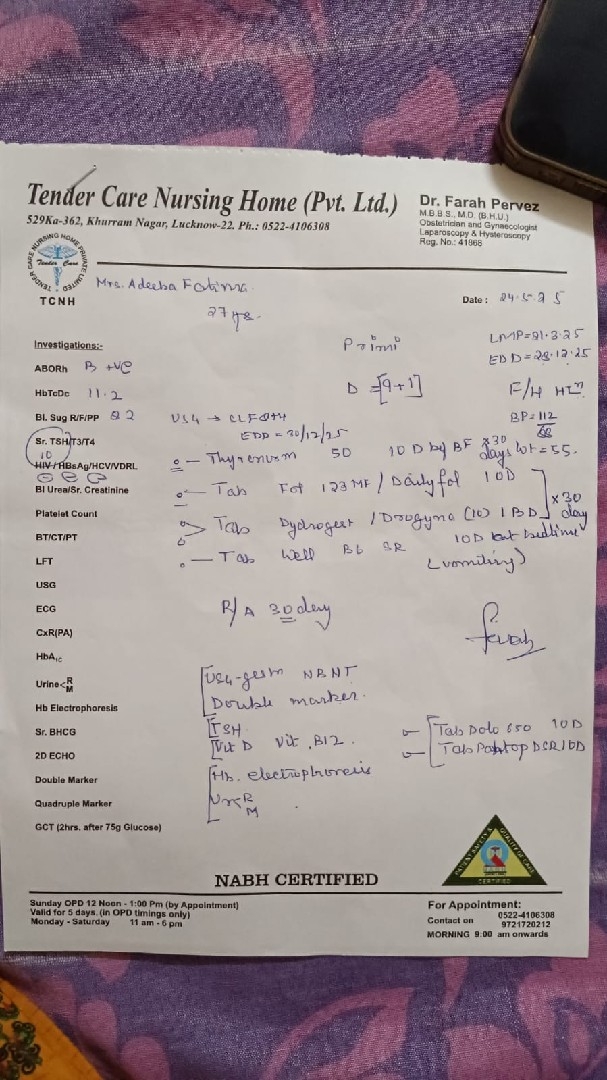 Tender Care Nursing Home (Pvt. Ltd.)
529Ka-362, Khurram Nagar, Lucknow-22. Ph.: 0522-4106308
Dr. Farah Pervez
M.B.B.S., M.D. (B.H.U.)
Obstetrician and Gynaecologist
Laparoscopy & Hysteroscopy
Reg. No.: 41868
TENDER CARE NURSING HOME PRIVATE LIMITED
Tender Care
TCNH
Mrs. Adeeba Fatima
27 yrs.
Date: 24.5.25
LMP=21.3.25
EDD=28.12.25
Primi
D =[9+1]
F/H HTN
BP=112/68
Wt=55.
Investigations:-
ABORh B +ve
HbTcDc 11.2
Bl. Sug R/F/PP 82
USG →
EDD=30/12/25
Sr. TSH/T3/T4
10
HIV/HBsAg/HCV/VDRL
Bl Urea/Sr. Creatinine
Platelet Count
BT/CT/PT
LFT
USG
ECG
CxR(PA)
HbA1c
Urine< R M
Hb Electrophoresis
Sr. BHCG
2D ECHO
Double Marker
Quadruple Marker
GCT (2hrs. after 75g Glucose)
— Thyronorm 50 1OD by BF x30 days
— Tab Fol 123 MF / Daily fol 1OD
Tab Dydrogest / Drogyna (10) 1 BD
x 30 day
— Tab Well B6 SR 1OD bedtime
(vomiting)
R/A 30 day
Farah
NBNT
Double marker.
TSH
Vit D Vit. B12.
Hb. electrophoresis
R M
Tab Dolo 650 1OD
Tab DSR 1OD
NABH CERTIFIED
PATIENT SAFETY & QUALITY OF CARE
CERTIFIED
Sunday OPD 12 Noon - 1:00 Pm (by Appointment)
Valid for 5 days. (in OPD timings only)
Monday - Saturday 11 am - 6 pm
For Appointment:
Contact on 0522-4106308
9721720212
MORNING 9:00 am onwards